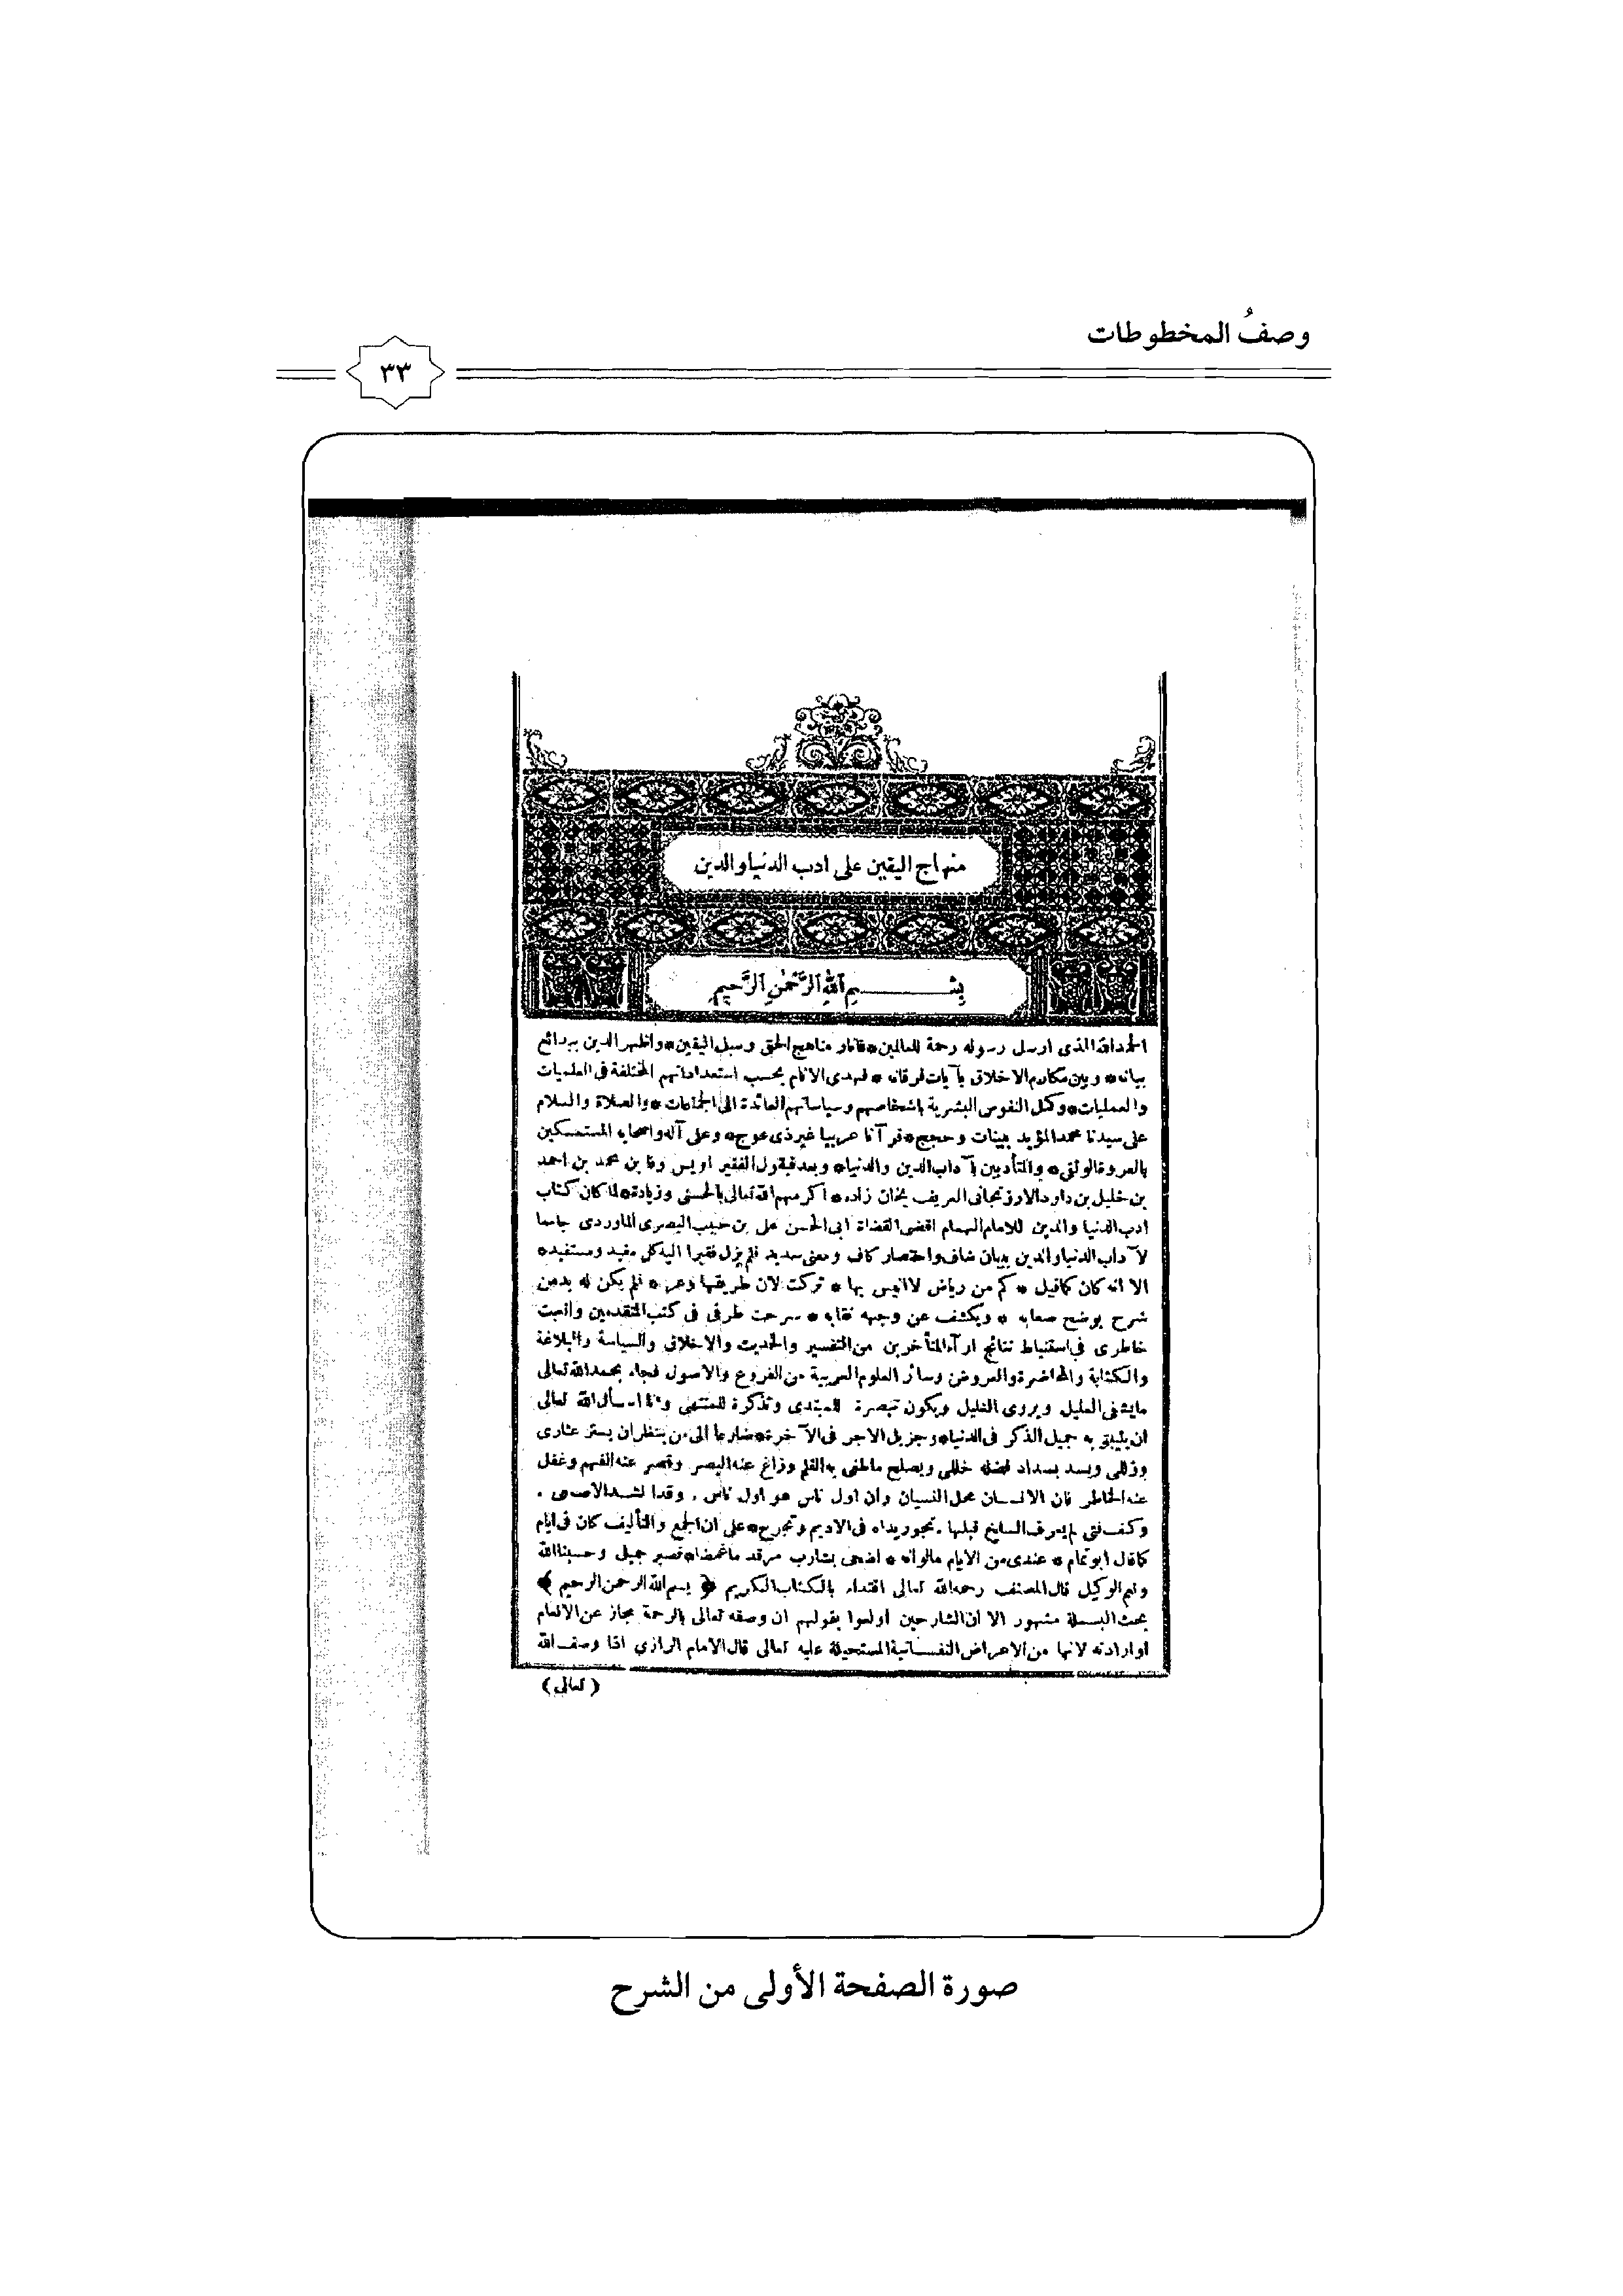 وصفُ المخطوطات
٣٣
منهاج اليقين على ادب الدنيا والدين
بِسْمِ اللهِ الرَّحْمٰنِ الرَّحِيمِ
الحمدالله الذى ارسل رسوله رحمة للعالمين * فانار مناهج الحق وسبل اليقين * واظهر الدين ببدائع
بيانه * وبين مكارم الاخلاق بآيات فرقانه * فهدى الانام بحسب استعداداتهم المختلفة فى العلميات
والعمليات * وكمل النفوس البشرية باشخاصهم وسياساتهم العائدة الى الجماعات * والصلاة والسلام
على سيدنا محمد المؤيد ببينات وحجج * قرآنا عربيا غير ذى عوج * وعلى آله واصحابه المستمسكين
بالعروة الوثقى * والمتأدبين بآداب الدين والدنيا * وبعد فيقول الفقير اويس وفا بن محمد بن احمد
بن خليل بن داود الارزنجانى العريف بخان زاده * اكرمهم الله تعالى بالحسنى وزيادة * لما كان كتاب
ادب الدنيا والدين للامام الهمام اقضى القضاة ابى الحسن على بن حبيب البصرى الماوردى جامعا
لآداب الدنيا والدين ببيان شاف واختصار كاف ومعنى سديد فلم يزل فقيرا اليه كل مفيد ومستفيد *
الا انه كان كماقيل * كم من رياض لا انيس بها * تركت لان طريقها وعر * فلم يكن له بد من
شرح يوضح صعابه * ويكشف عن وجهه نقابه * سرحت طرفى فى كتب المتقدمين واتعبت
خاطرى فى استنباط نتائج ارآء المتأخرين من التفسير والحديث والاخلاق والسياسة والبلاغة
والكتابة والمحاضرة والعروض وسائر العلوم العربية من الفروع والاصول فجاء بحمد الله تعالى
مايشفى العليل ويروى الغليل ويكون تبصرة للمبتدى وتذكرة للمنتهى وانا اسأل الله تعالى
ان يليق به جميل الذكر فى الدنيا * وجزيل الاجر فى الآخرة * ضارعا الى من ينظر ان يستر عثارى
وزللى ويسد بسداد فضله خللى ويصلح ماطغى به القلم وزاغ عنه البصر وقصر عنه الفهم وغفل
عنه الخاطر فان الانسان محل النسيان وان اول ناس هو اول ناس . وقد انشد الاصمعى .
وكف فتى لم يعرف السلخ قبلها . تجور يداه فى الاديم وتجرح * على ان الجمع والتأليف كان فى ايام
كماقال ابوتمام * عندى من الايام مالوانه * اضحى بشارب مرقد ماغمضا * فصبر جميل وحسبنا الله
ونعم الوكيل قال المصنف رحمه الله تعالى اقتداء بالكتاب الكريم ﴿ بسم الله الرحمن الرحيم ﴾
بحث البسملة مشهور الا ان الشارحين اولعوا بقولهم ان وصفه تعالى بالرحمة مجاز عن الانعام
او ارادته لانها من الاعراض النفسانية المستحيلة عليه تعالى قال الامام الرازي اذا وصف الله
( تعالى )
صورة الصفحة الأولى من الشرح